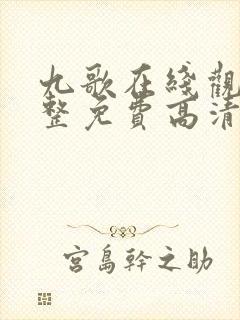 九歌在綫觀
整免費高清
宮島幹之助